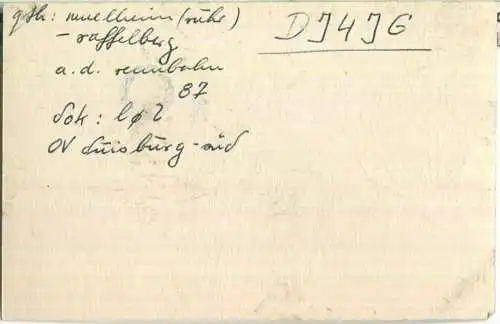 qth: muelheim (ruhr)
-raffelberg
a.d. rennbahn
87
dok: lø2
OV duisburg-süd
DJ4JG